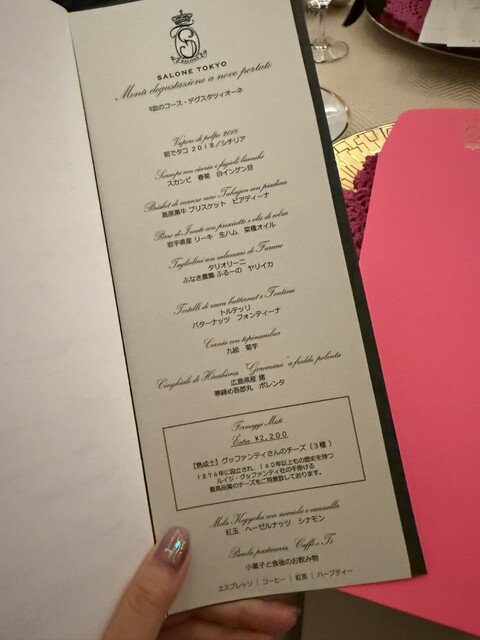 SALONE
SALONE TOKYO
Menù degustazione a nove portate
9皿のコース・デグスタツィオーネ
Vapore di polpo 2018
茹でタコ 2018/シチリア
Scampi con cicoria e fagioli bianchi
スカンピ 春菊 白インゲン豆
Brisket di manzo nero Takagen con piadina
高原黒牛 ブリスケット ピアディーナ
Porro di Iwate con prosciutto e olio di colza
岩手県産 リーキ 生ハム 菜種オイル
Tagliolini con calamaro di Funano
タリオリーニ
ふなき農園 ふるーの ヤリイカ
Tortelli di zucca butternut e Fontina
トルテッリ
バターナッツ フォンティーナ
Cernia con topinambur
九絵 菊芋
Cinghiale di Hiroshima, "Goromaru" a freddo polenta
広島県産 猪
寒締め吾郎丸 ポレンタ
Formaggi Misti
Extra ¥2,200
【熟成士】グッファンティさんのチーズ（3種）
1876年に設立され、140年以上もの歴史を持つ
ルイジ・グッファンティ社の手掛ける
最高品質のチーズをご用意しております。
Mela Kogyoku con nocciola e cannella
紅玉 ヘーゼルナッツ シナモン
Piccola pasticceria, Caffè o Tè
小菓子と食後のお飲み物
エスプレッソ | コーヒー | 紅茶 | ハーブティー